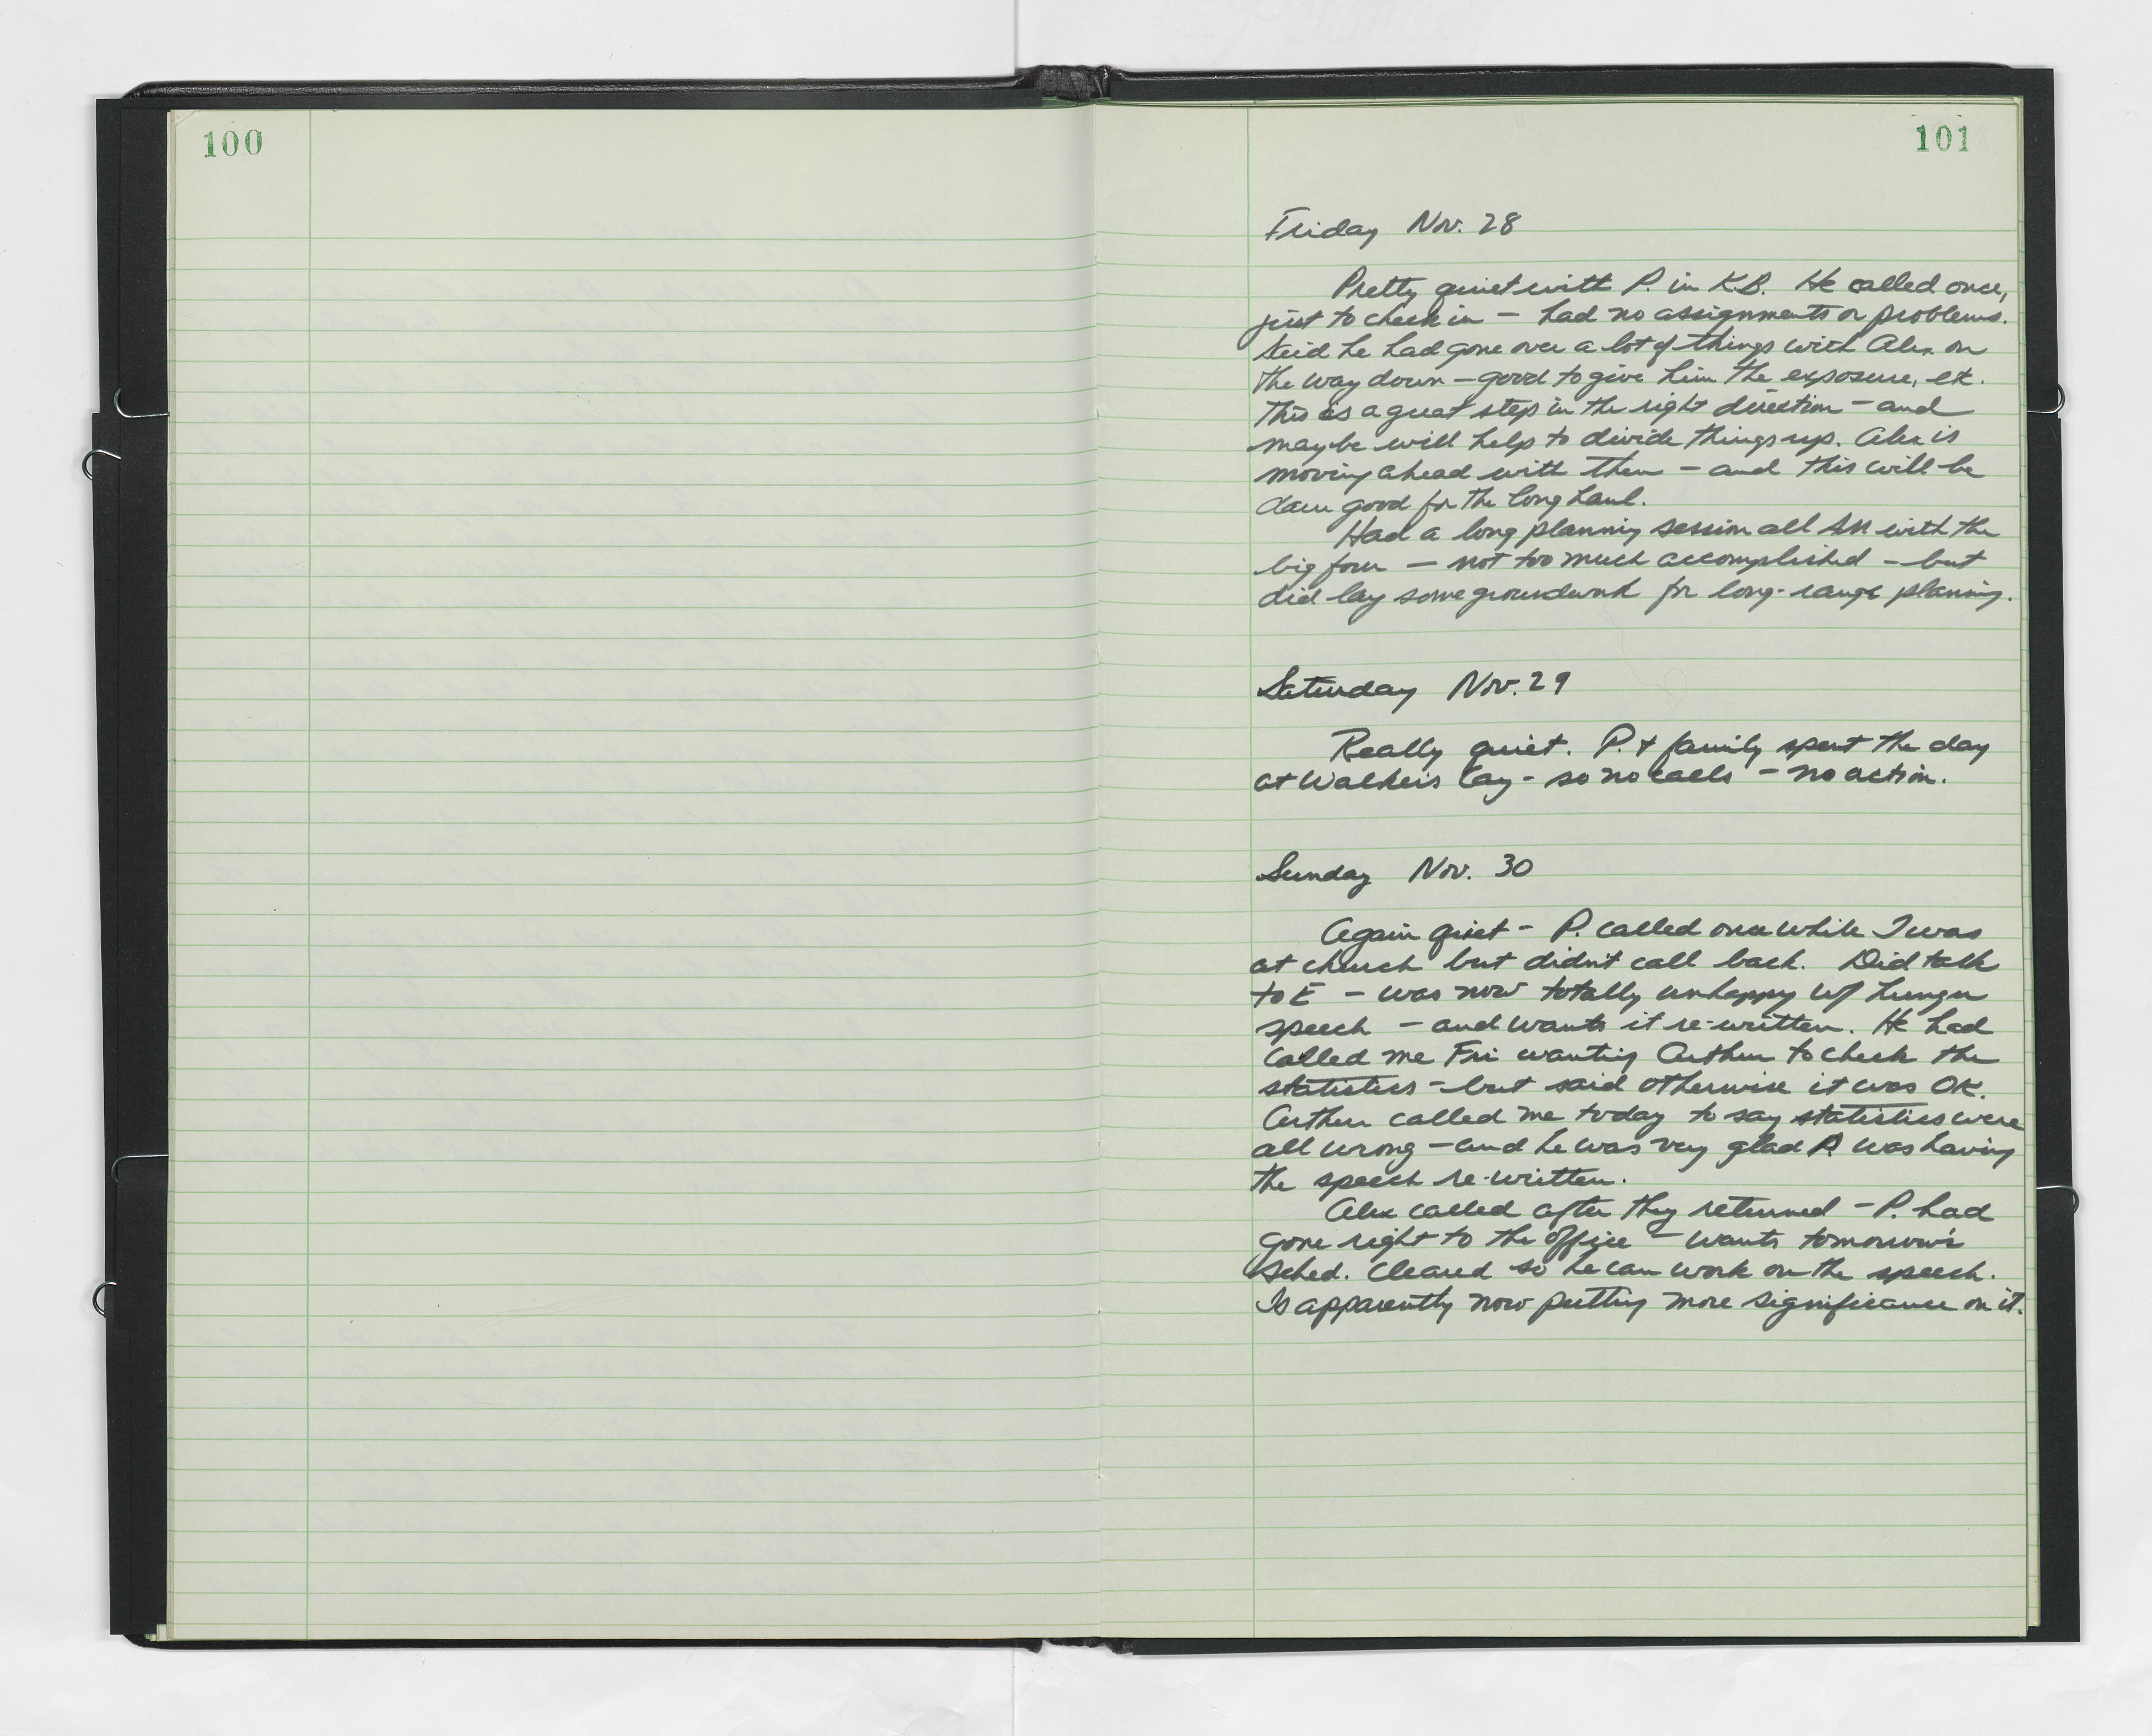 100
101
Friday Nov. 28
Pretty quiet with P. in K.B. He called once,
just to check in — had no assignments or problems.
Said he had gone over a lot of things with Alex on
the way down — good to give him the exposure, etc.
This is a great step in the right direction — and
maybe will help to divide things up. Alex is
moving ahead with them — and this will be
darn good for the long haul.
Had a long planning session all AM with the
big four — not too much accomplished — but
did lay some groundwork for long-range planning.
Saturday Nov. 29
Really quiet. P. + family spent the day
at Walkers Cay - so no calls - no action.
Sunday Nov. 30
Again quiet - P. called once while I was
at church but didn't call back. Did talk
to E - was now totally unhappy w/ hunger
speech - and wants it re-written. He had
called me Fri wanting Arthur to check the
statistics - but said otherwise it was OK.
Arthur called me today to say statistics were
all wrong - and he was very glad P. was having
the speech re-written.
Alex called after they returned - P. had
gone right to the office - wants tomorrow's
sched. cleared so he can work on the speech.
Is apparently now putting more significance on it.